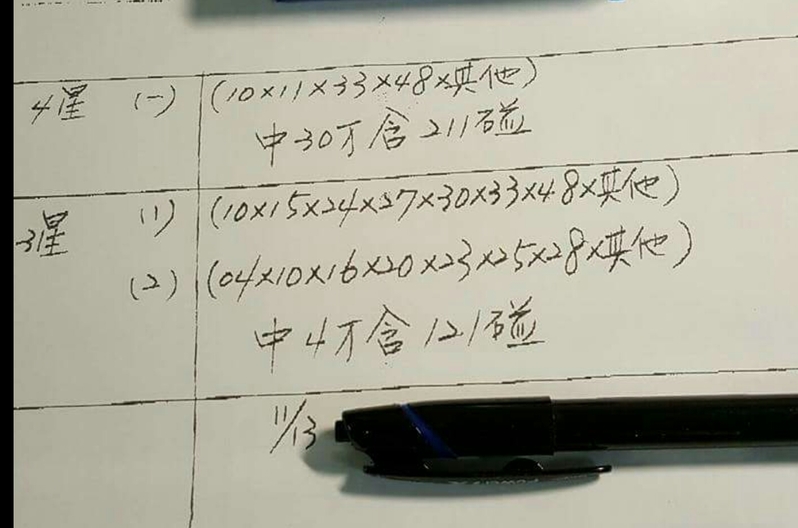 4星 (一) (10×11×33×48×其他)
中30万含211碰
3星 (1) (10×15×24×27×30×33×48×其他)
(2) (04×10×16×20×23×25×28×其他)
中4万含121碰
11/13